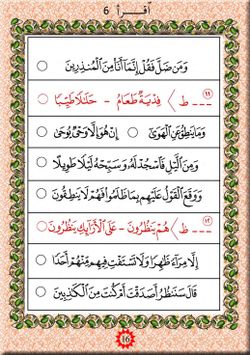 أقـرأ 6
وَمَن ضَلَّ فَقُلْ إِنَّمَآ أَنَا۠ مِنَ ٱلْمُنذِرِينَ
١١ --- ط ⟩ فِدْيَةٌ طَعَامُ - حَلَٰلًا طَيِّبًا
وَمَا يَنطِقُ عَنِ ٱلْهَوَىٰٓ ○ إِنْ هُوَ إِلَّا وَحْىٌ يُوحَىٰ
وَمِنَ ٱلَّيْلِ فَٱسْجُدْ لَهُۥ وَسَبِّحْهُ لَيْلًا طَوِيلًا
وَوَقَعَ ٱلْقَوْلُ عَلَيْهِم بِمَا ظَلَمُوا۟ فَهُمْ لَا يَنطِقُونَ
١٢ --- ظ ⟩ هُمْ يَنظُرُونَ - عَلَى ٱلْأَرَآئِكِ يَنظُرُونَ
إِلَّا مِرَآءً ظَٰهِرًا وَلَا تَسْتَفْتِ فِيهِم مِّنْهُمْ أَحَدًا
قَالَ سَنَنظُرُ أَصَدَقْتَ أَمْ كُنتَ مِنَ ٱلْكَٰذِبِينَ
16